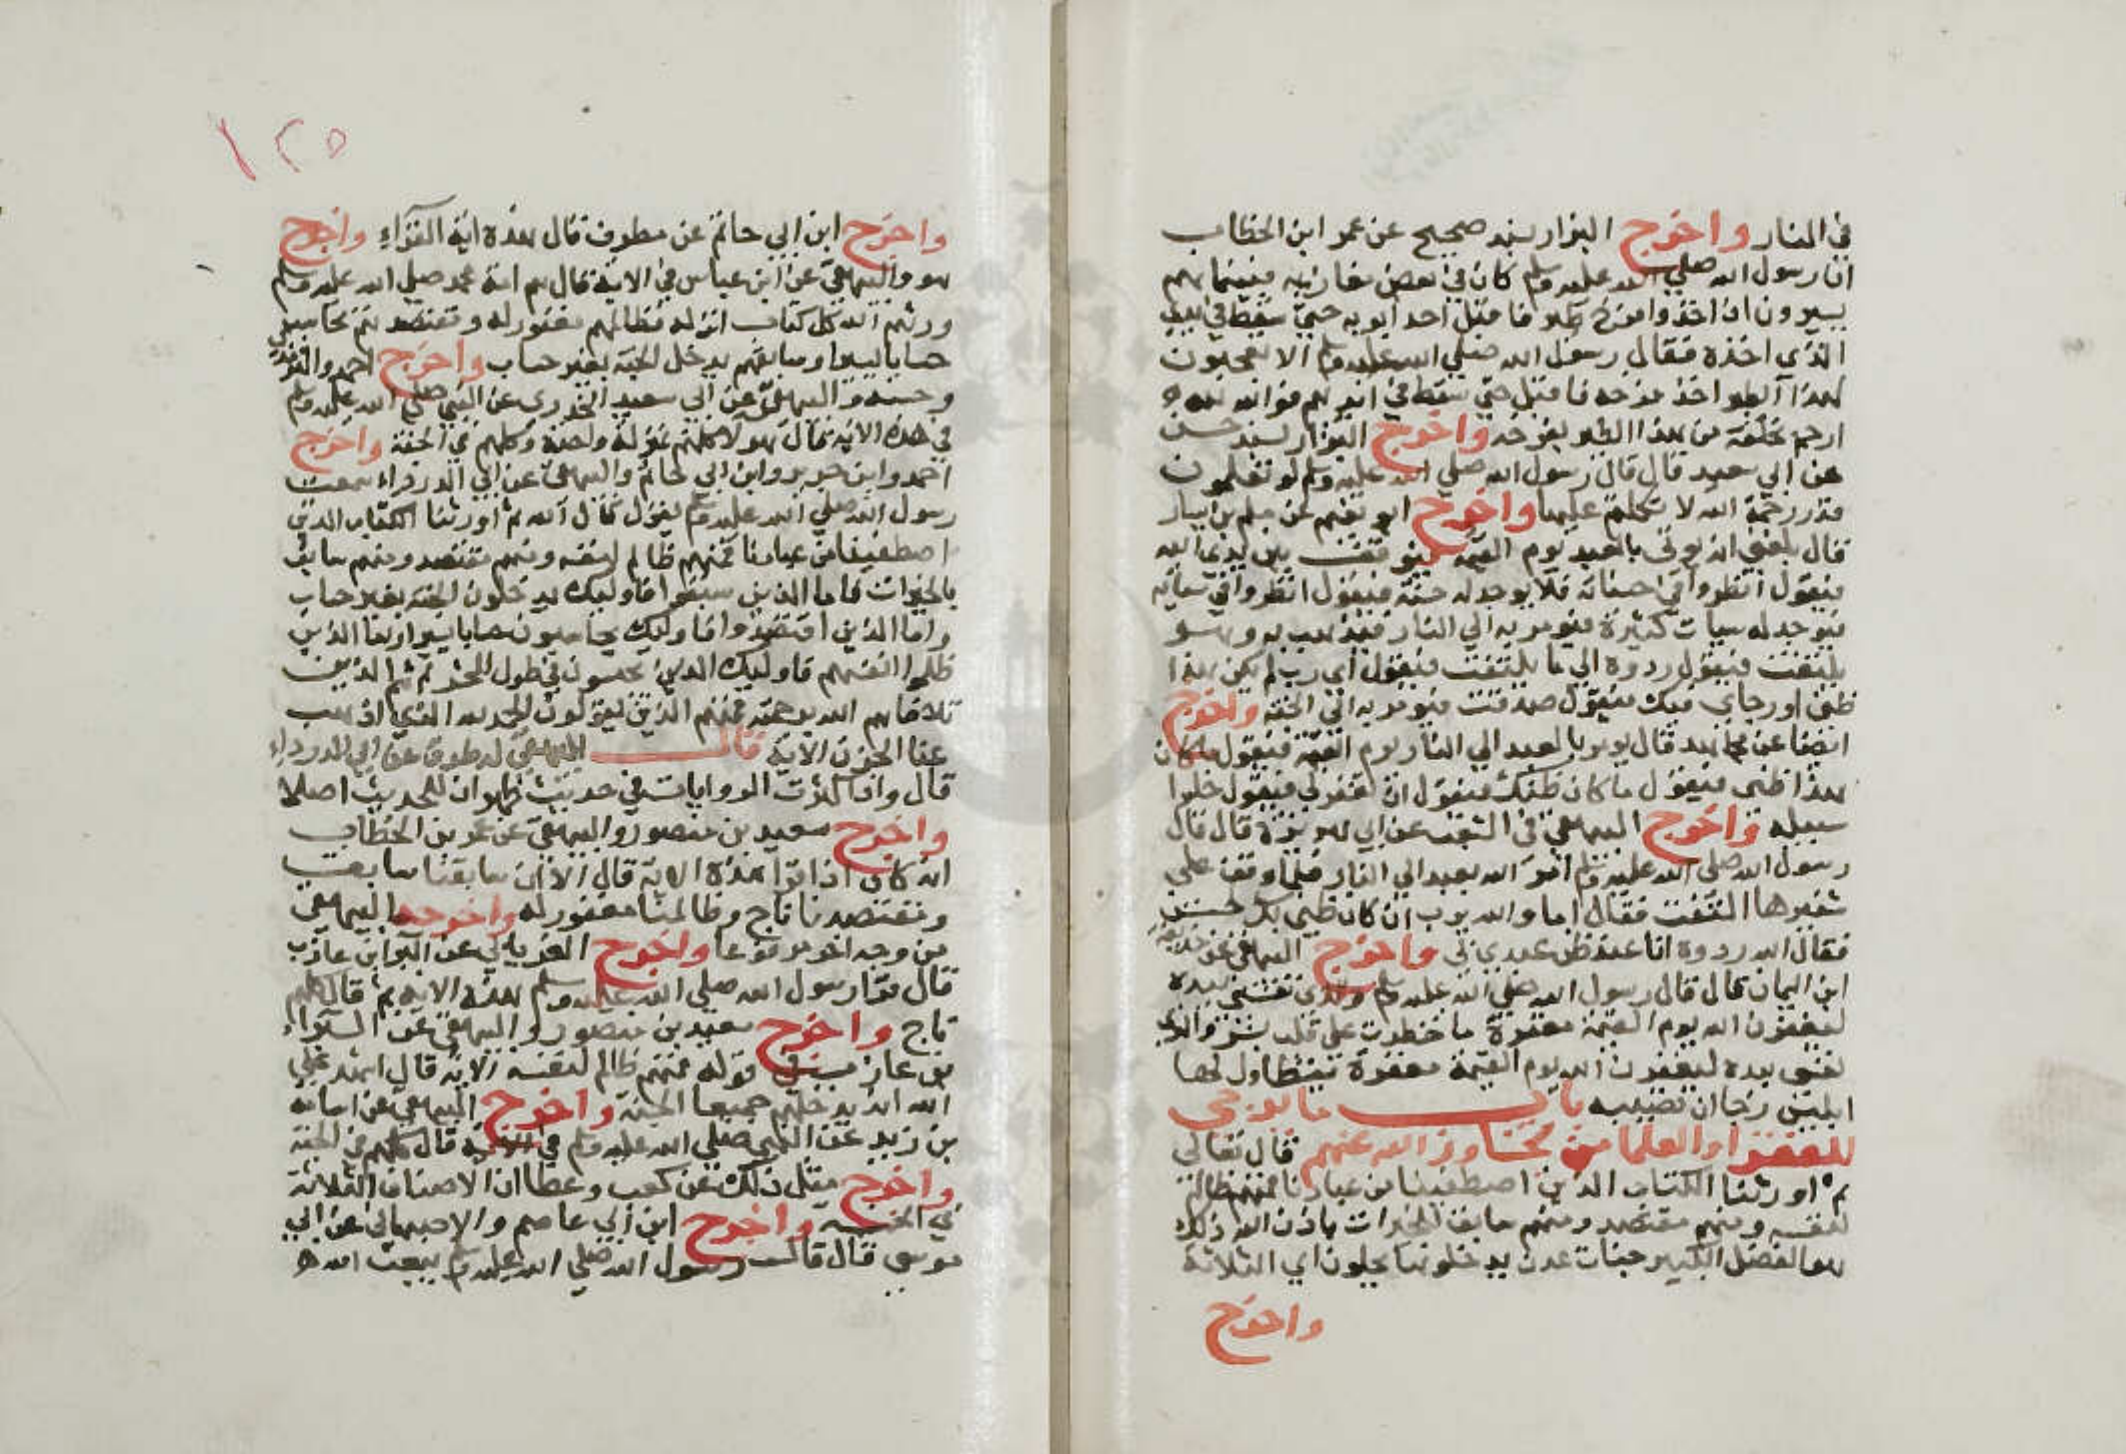 في النار واخرج البزار بسند صحيح عن عمر ابن الخطاب
ان رسول الله صلي الله عليه وسلم كان في بعض مغازيه فبينما هم
يسيرون اذ اخذوا فرخ طير فاقبل احد ابويه حتي سقط في يد
الذي اخذه فقال رسول الله صلي الله عليه وسلم الا تعجبون
لهذا الطير اخذ فرخه فاقبل حتي سقط في ايديهم فوالله لله
ارحم بخلقه من هذا الطير بفرخه واخرج البزار بسند حسن
عن ابي سعيد قال قال رسول الله صلي الله عليه وسلم لو تعلمون
قدر رحمة الله لا تكلتم عليها واخرج ابو نعيم عن مسلم بن يسار
قال بلغني انه يوتي بالعبد يوم القيمة فيوقف بين يدي الله
فيقول انظروا في حسناته فلا يوجد له حسنة فيقول انظروا في سياته
فيوجد له سيات كثيرة فيومر به الي النار فيذهب به وهو
يلتفت فيقول ردوه الي ما يلتفت فيقول اي رب لم يكن هذا
ظني او رجاي فيك فيقول صدقت فيومر به الي الجنة واخرج
ايضا عن مجاهد قال يومر بالعبد الي النار يوم القيمة فيقول ما كان
هذا ظني فيقول ما كان ظنك فيقول ان تغفر لي فيقول خلوا
سبيله واخرج البيهقي في الشعب عن ابي هريرة قال قال
رسول الله صلي الله عليه وسلم امر الله بعبد الي النار فلما وقف علي
شفيرها التفت فقال اما والله يرب ان كان ظني بك حسن
فقال الله ردوه انا عند ظن عبدي بي واخرج البيهقي عن حذيفة
ابن اليمان قال قال رسول الله صلي الله عليه وسلم والذي نفسي بيده
ليغفرن الله يوم القيمة مغفرة ما خطرت علي قلب بشر والذي
نفسي بيده ليغفرن الله يوم القيمة مغفرة يتطاول لها
ابليس رجا ان تصيبه باب ما يرجي
للفقرا والعلما من تجاوز الله عنهم قال تعالي
ثم اورثنا الكتاب الذين اصطفينا من عبادنا فمنهم ظالم
لنفسه ومنهم مقتصد ومنهم سابق بالخيرات باذن الله ذلك
هو الفضل الكبير جنات عدن يدخلونها يحلون اي الثلاثة
واخرج
١٢٥
واخرج ابن ابي حاتم عن مطرف قال هذه اية القراء واخرج
هو والبيهقي عن ابن عباس في الاية قال هم امة محمد صلي الله عليه وسلم
ورثهم الله كل كتاب انزله فظالمهم مغفور له ومقتصدهم يحاسب
حسابا يسيرا وسابقهم يدخل الجنة بغير حساب واخرج احمد والترمذي
وحسنه والبيهقي عن ابي سعيد الخدري عن النبي صلي الله عليه وسلم
في هذه الاية قال هولا كلهم بمنزلة واحدة وكلهم في الجنة واخرج
احمد وابن جرير وابن ابي حاتم والبيهقي عن ابي الدرداء سمعت
رسول الله صلي الله عليه وسلم يقول قال الله ثم اورثنا الكتاب الذين
اصطفينا من عبادنا فمنهم ظالم لنفسه ومنهم مقتصد ومنهم سابق
بالخيرات فاما الذين سبقوا فاوليك يدخلون الجنة بغير حساب
واما الذين اقتصدوا فاوليك يحاسبون حسابا يسيرا واما الذين
ظلموا انفسهم فاوليك الذين يحبسون في طول المحشر ثم هم الذين
تلافاهم الله برحمته فهم الذين يقولون الحمد لله الذي اذهب
عنا الحزن الاية قال البيهقي له طرق عن ابي الدرداء
قال واذا كثرت الروايات في حديث ظهر ان للحديث اصلا
واخرج سعيد بن منصور والبيهقي عن عمر بن الخطاب
انه كان اذا قرأ هذه الاية قال الا ان سابقنا سابق
ومقتصدنا ناج وظالمنا مغفور له واخرجه البيهقي
من وجه اخر مرفوعا واخرج الفريابي عن البرا بن عازب
قال قرا رسول الله صلي الله عليه وسلم هذه الاية ثم قال كلهم
ناج واخرج سعيد بن منصور والبيهقي عن البراء
بن عازب في قوله فمنهم ظالم لنفسه الاية قال اشهد علي
الله انه يدخلهم جميعا الجنة واخرج البيهقي عن اسامة
بن زيد عن النبي صلي الله عليه وسلم في الاية قال كلهم في الجنة
واخرج مثل ذلك عن كعب وعطا ان الاصناف الثلاثة
في الجنة واخرج ابن ابي عاصم والاصبهاني عن ابي
موسي قال قال رسول الله صلي الله عليه وسلم يبعث الله